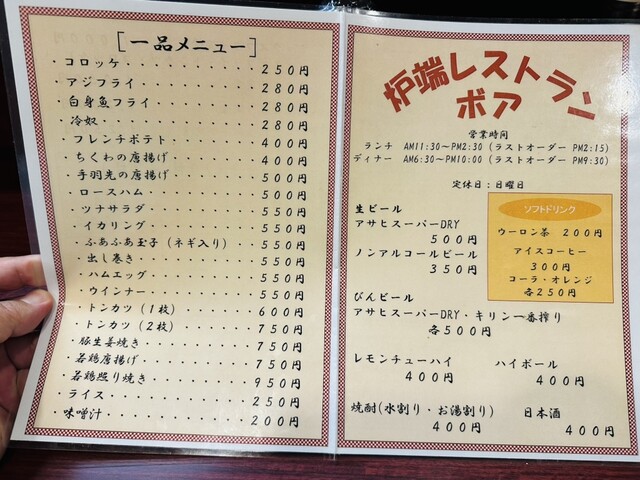 [一品メニュー]
・コロッケ・・・・・・・・・・250円
・アジフライ・・・・・・・・・280円
・白身魚フライ・・・・・・・・280円
・冷奴・・・・・・・・・・・・280円
・フレンチポテト・・・・・・・400円
・ちくわの唐揚げ・・・・・・・400円
・手羽先の唐揚げ・・・・・・・500円
・ロースハム・・・・・・・・・500円
・ツナサラダ・・・・・・・・・550円
・イカリング・・・・・・・・・550円
・ふあふあ玉子(ネギ入り)・・・550円
・出し巻き・・・・・・・・・・550円
・ハムエッグ・・・・・・・・・550円
・ウインナー・・・・・・・・・550円
・トンカツ(1枚)・・・・・・・600円
・トンカツ(2枚)・・・・・・・750円
・豚生姜焼き・・・・・・・・・750円
・若鶏唐揚げ・・・・・・・・・750円
・若鶏照り焼き・・・・・・・・950円
・ライス・・・・・・・・・・・250円
・味噌汁・・・・・・・・・・・200円
炉端レストラン
ボア
営業時間
ランチ AM11:30~PM2:30(ラストオーダー PM2:15)
ディナー AM6:30~PM10:00(ラストオーダー PM9:30)
定休日:日曜日
生ビール
アサヒスーパーDRY
500円
ノンアルコールビール
350円
ソフトドリンク
ウーロン茶 200円
アイスコーヒー
300円
コーラ・オレンジ
各250円
びんビール
アサヒスーパーDRY・キリン一番搾り
各500円
レモンチューハイ
400円
ハイボール
400円
焼酎(水割り・お湯割り)
400円
日本酒
400円